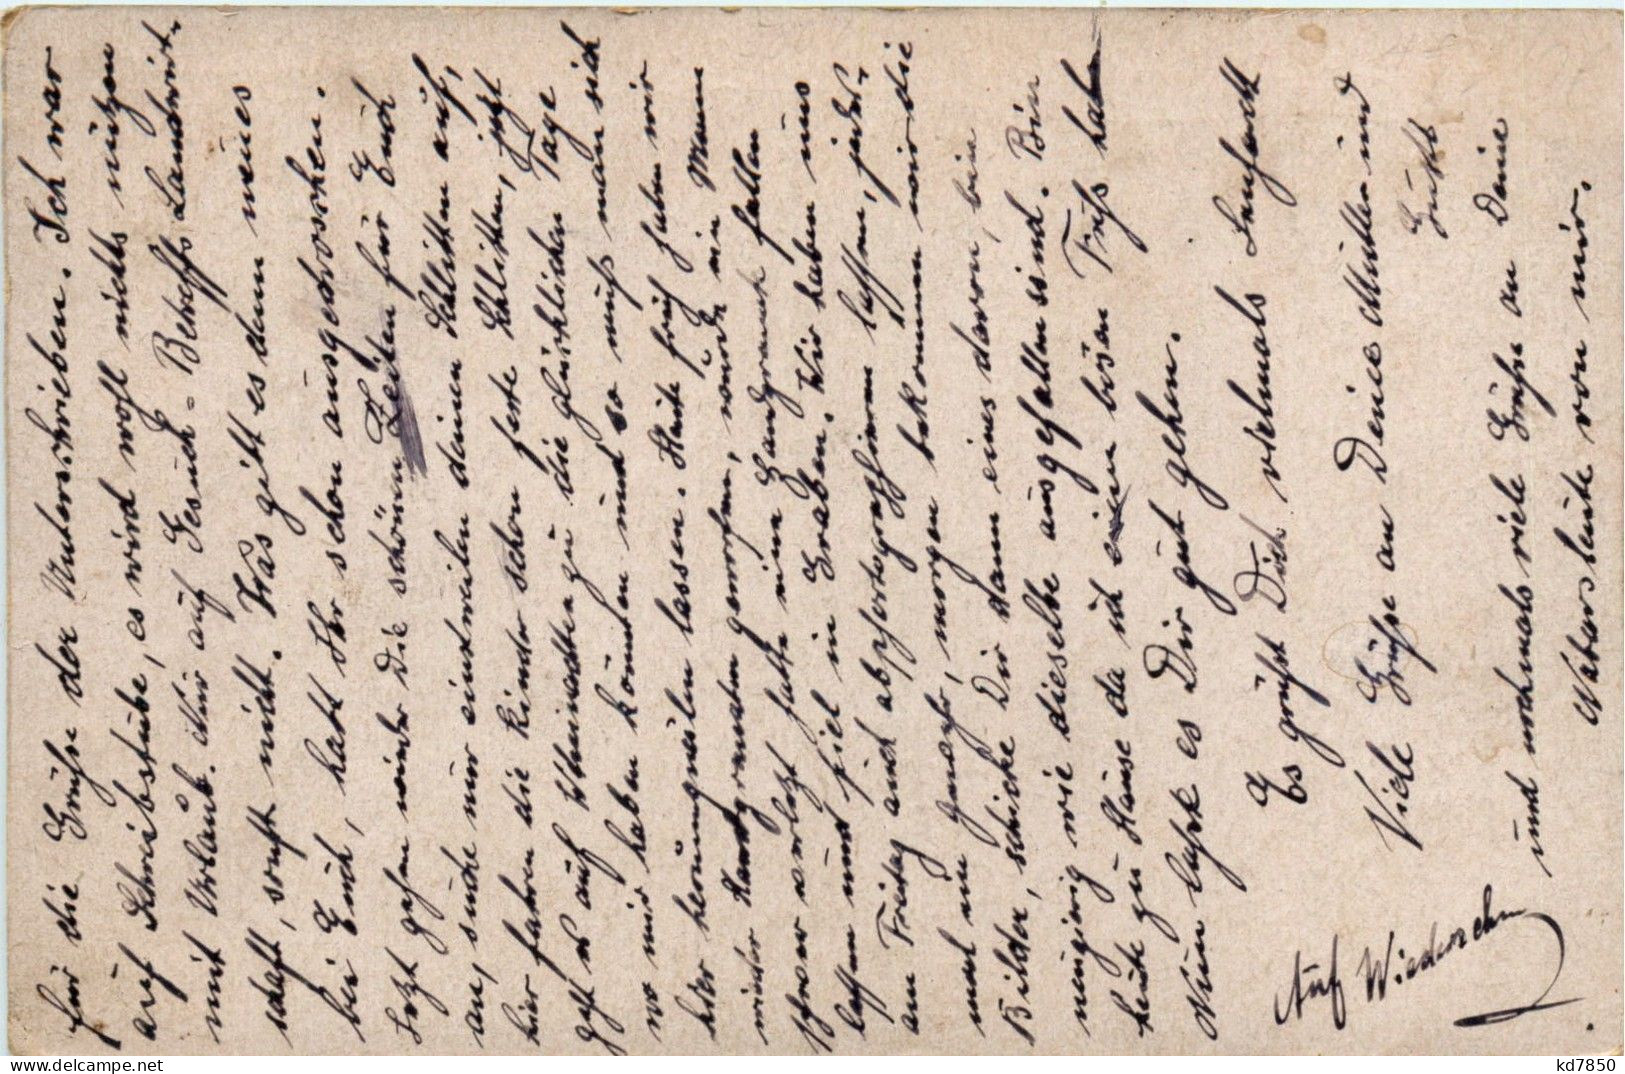 für die Grüße der Unterschrieben. Ich war
auf Schreibstube, es wird wohl nichts nützen
mit Urlaub. Nur auf Gesuch = Betreffs Landwirt-
schaft, sonst nicht. Was gibt es denn neues
bei Euch, habt Ihr schon ausgedroschen.
Jetzt gehen wieder die schönen Zeiten für Euch
an, suche nur einstweilen deinen Schlitten auf,
hier fahren die Kinder schon feste Schlitten, jetzt
geht es auf Weinachten zu die glücklichen Tage
wo wir haben könnten und so muß man sich
hier herumquälen lassen. Heute früh haben wir
wieder Handgranaten geworfen, wurde ein Mann
schwer verlezt hatte eine Handgranate fallen
lassen und fiel in Graben. Wir haben uns
am Freitag auch abphotographieren lassen, jeder
und ein Gewehr, morgen bekommen wir die
Bilder, schicke Dir dann eines davon, bin
neugierig wie dieselbe ausgefallen sind. Bin
heute zu Hause da ich einen bösen Fuß habe
Nun laße es Dir gut gehen.
Es grüßt Dich vielmals
Viele Grüße an Deine Mutter und
und nochmals viele Grüße an Deine
Vatersleute von mir.
Auf Wiedersehn
kd7850